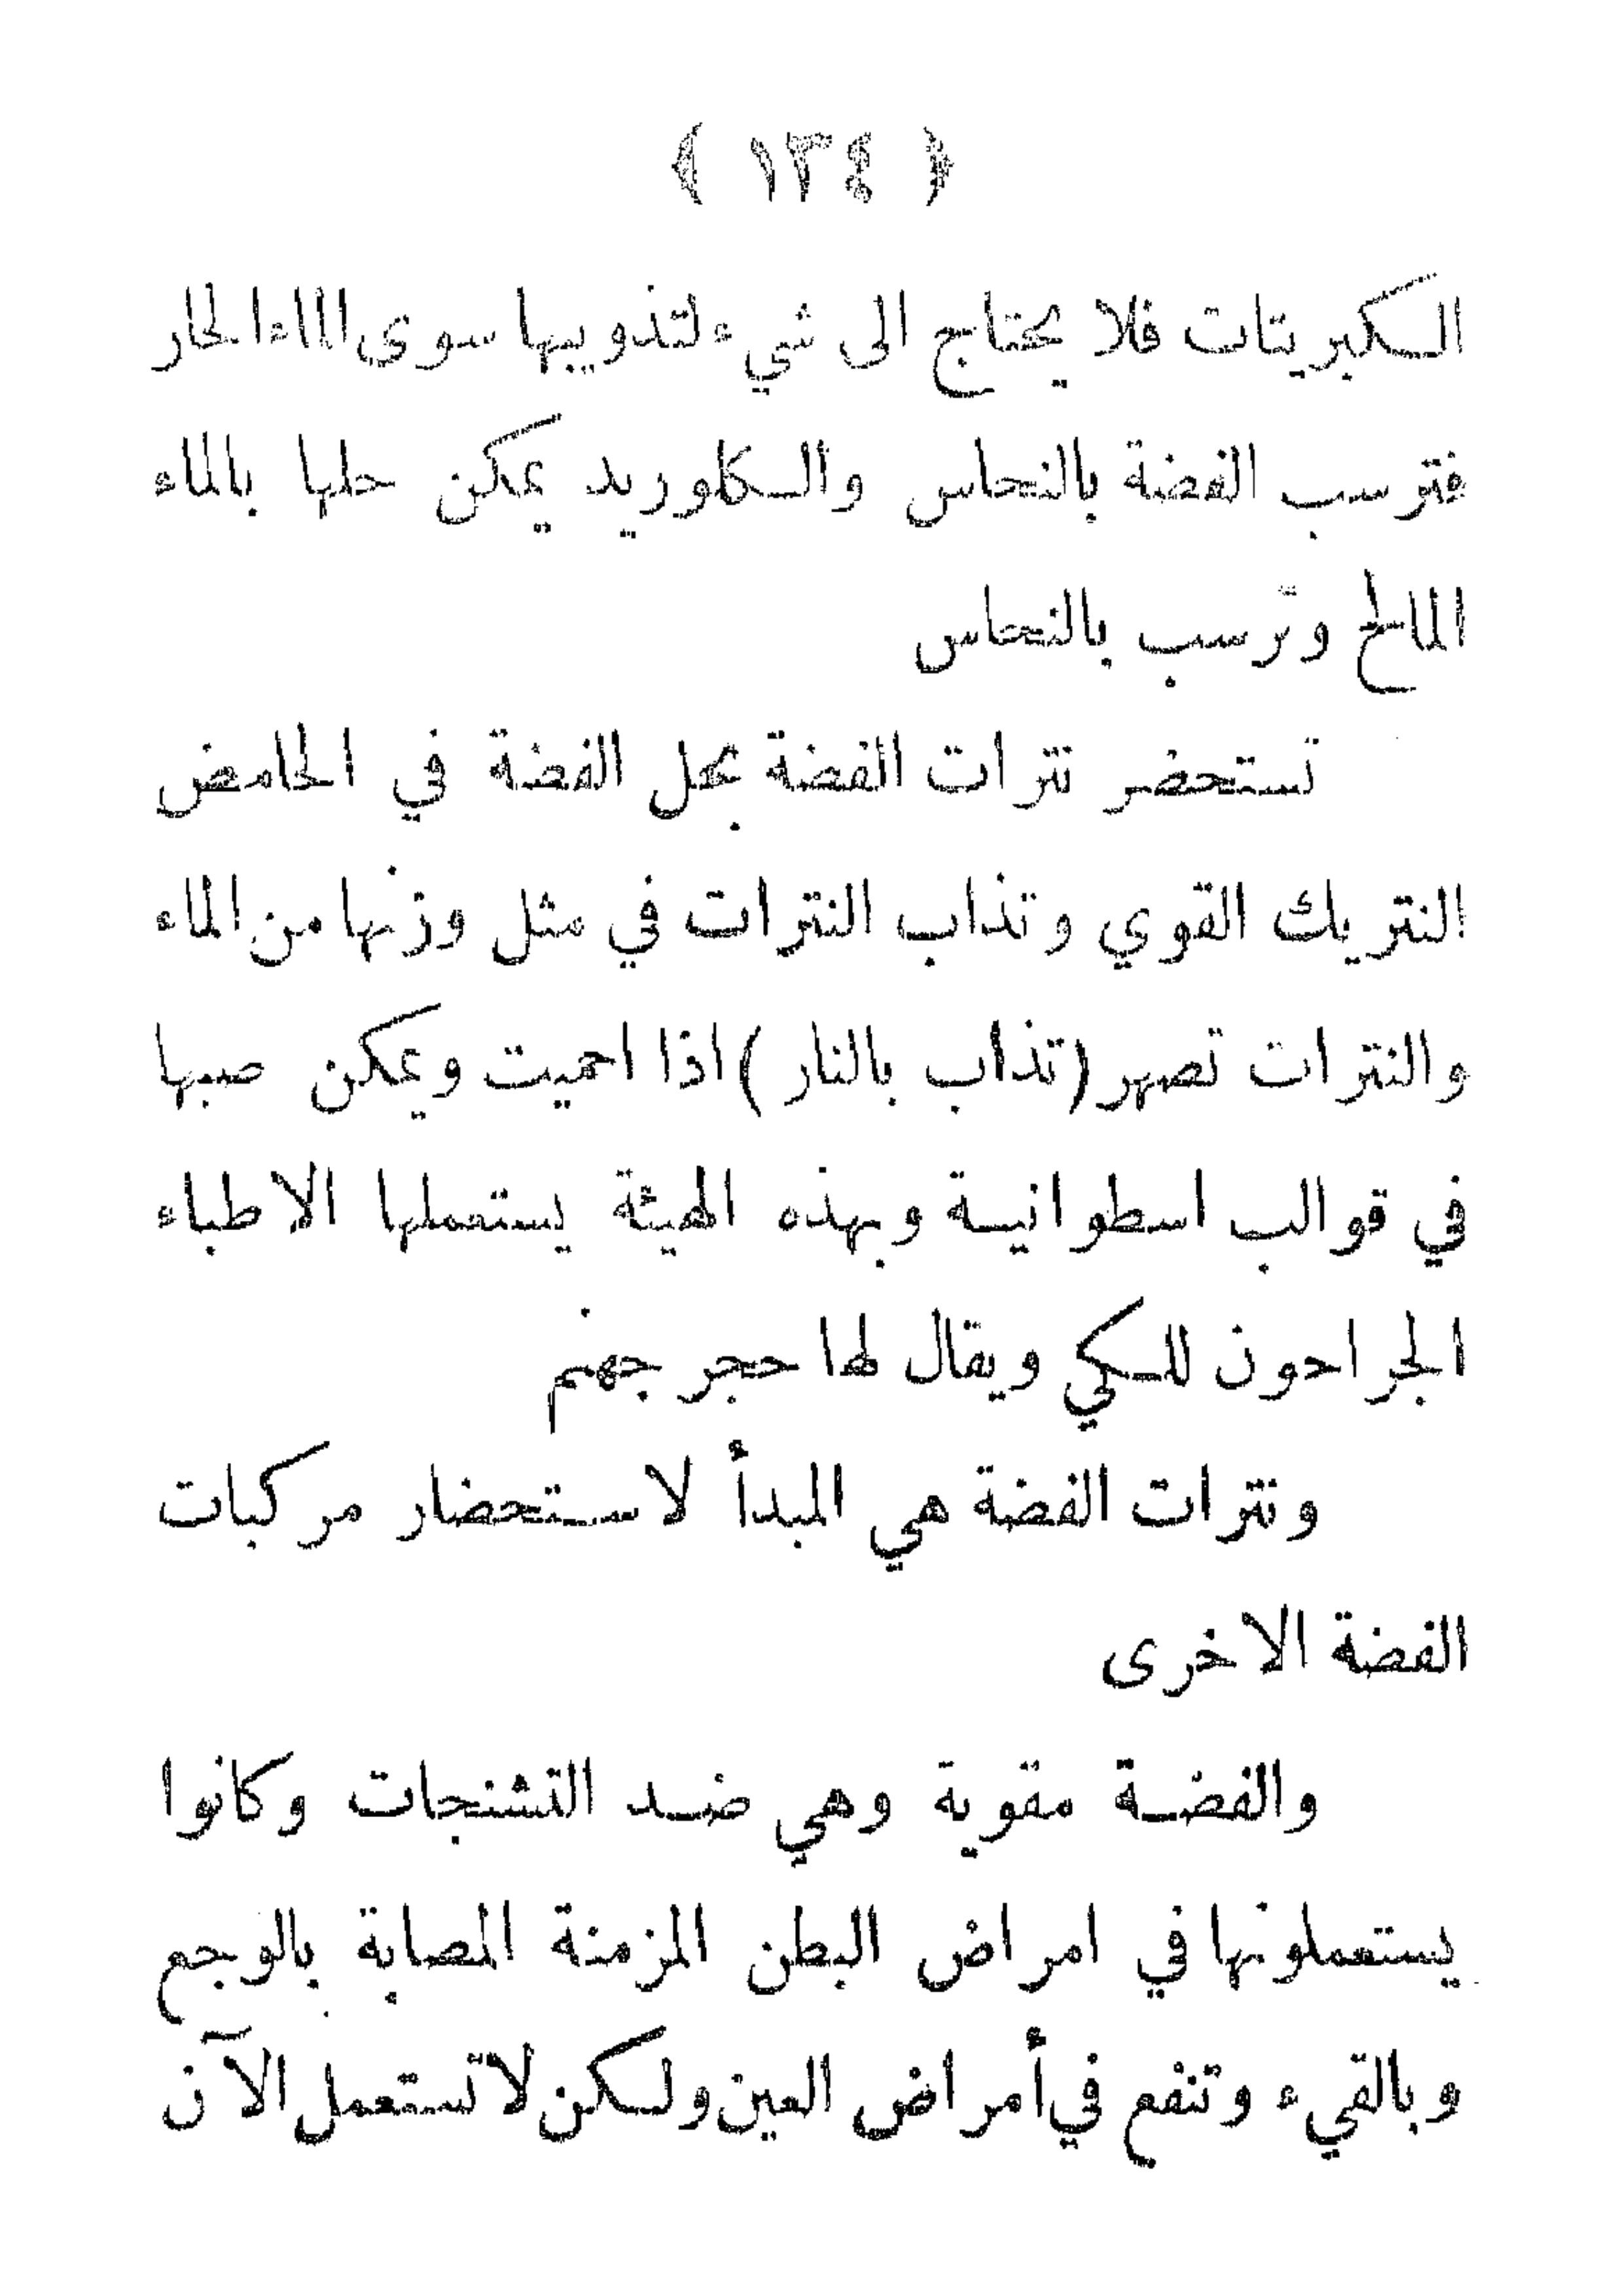 ﴿ ١٣٤ ﴾
الكبريتات فلا يحتاج الى شيء لتذويبها سوى الماء الحار
فترسب الفضة بالنحاس والكلوريد يمكن حلها بالماء
المالح وترسب بالنحاس
تستحضر نترات الفضة بحل الفضة في الحامض
النتريك القوي وتذاب النترات في مثل وزنها من الماء
والنترات تصهر (تذاب بالنار) اذا احميت ويمكن صبها
في قوالب اسطوانية وبهذه الهيئة يستعملها الاطباء
الجراحون للكي ويقال لها حجر جهنم
ونترات الفضة هي المبدأ لاستحضار مركبات
الفضة الاخرى
والفضة مقوية وهي ضد التشنجات وكانوا
يستعملونها في امراض البطن المزمنة المصابة بالوجع
وبالقيء وتنفع في أمراض العين ولكن لا تستعمل الآن